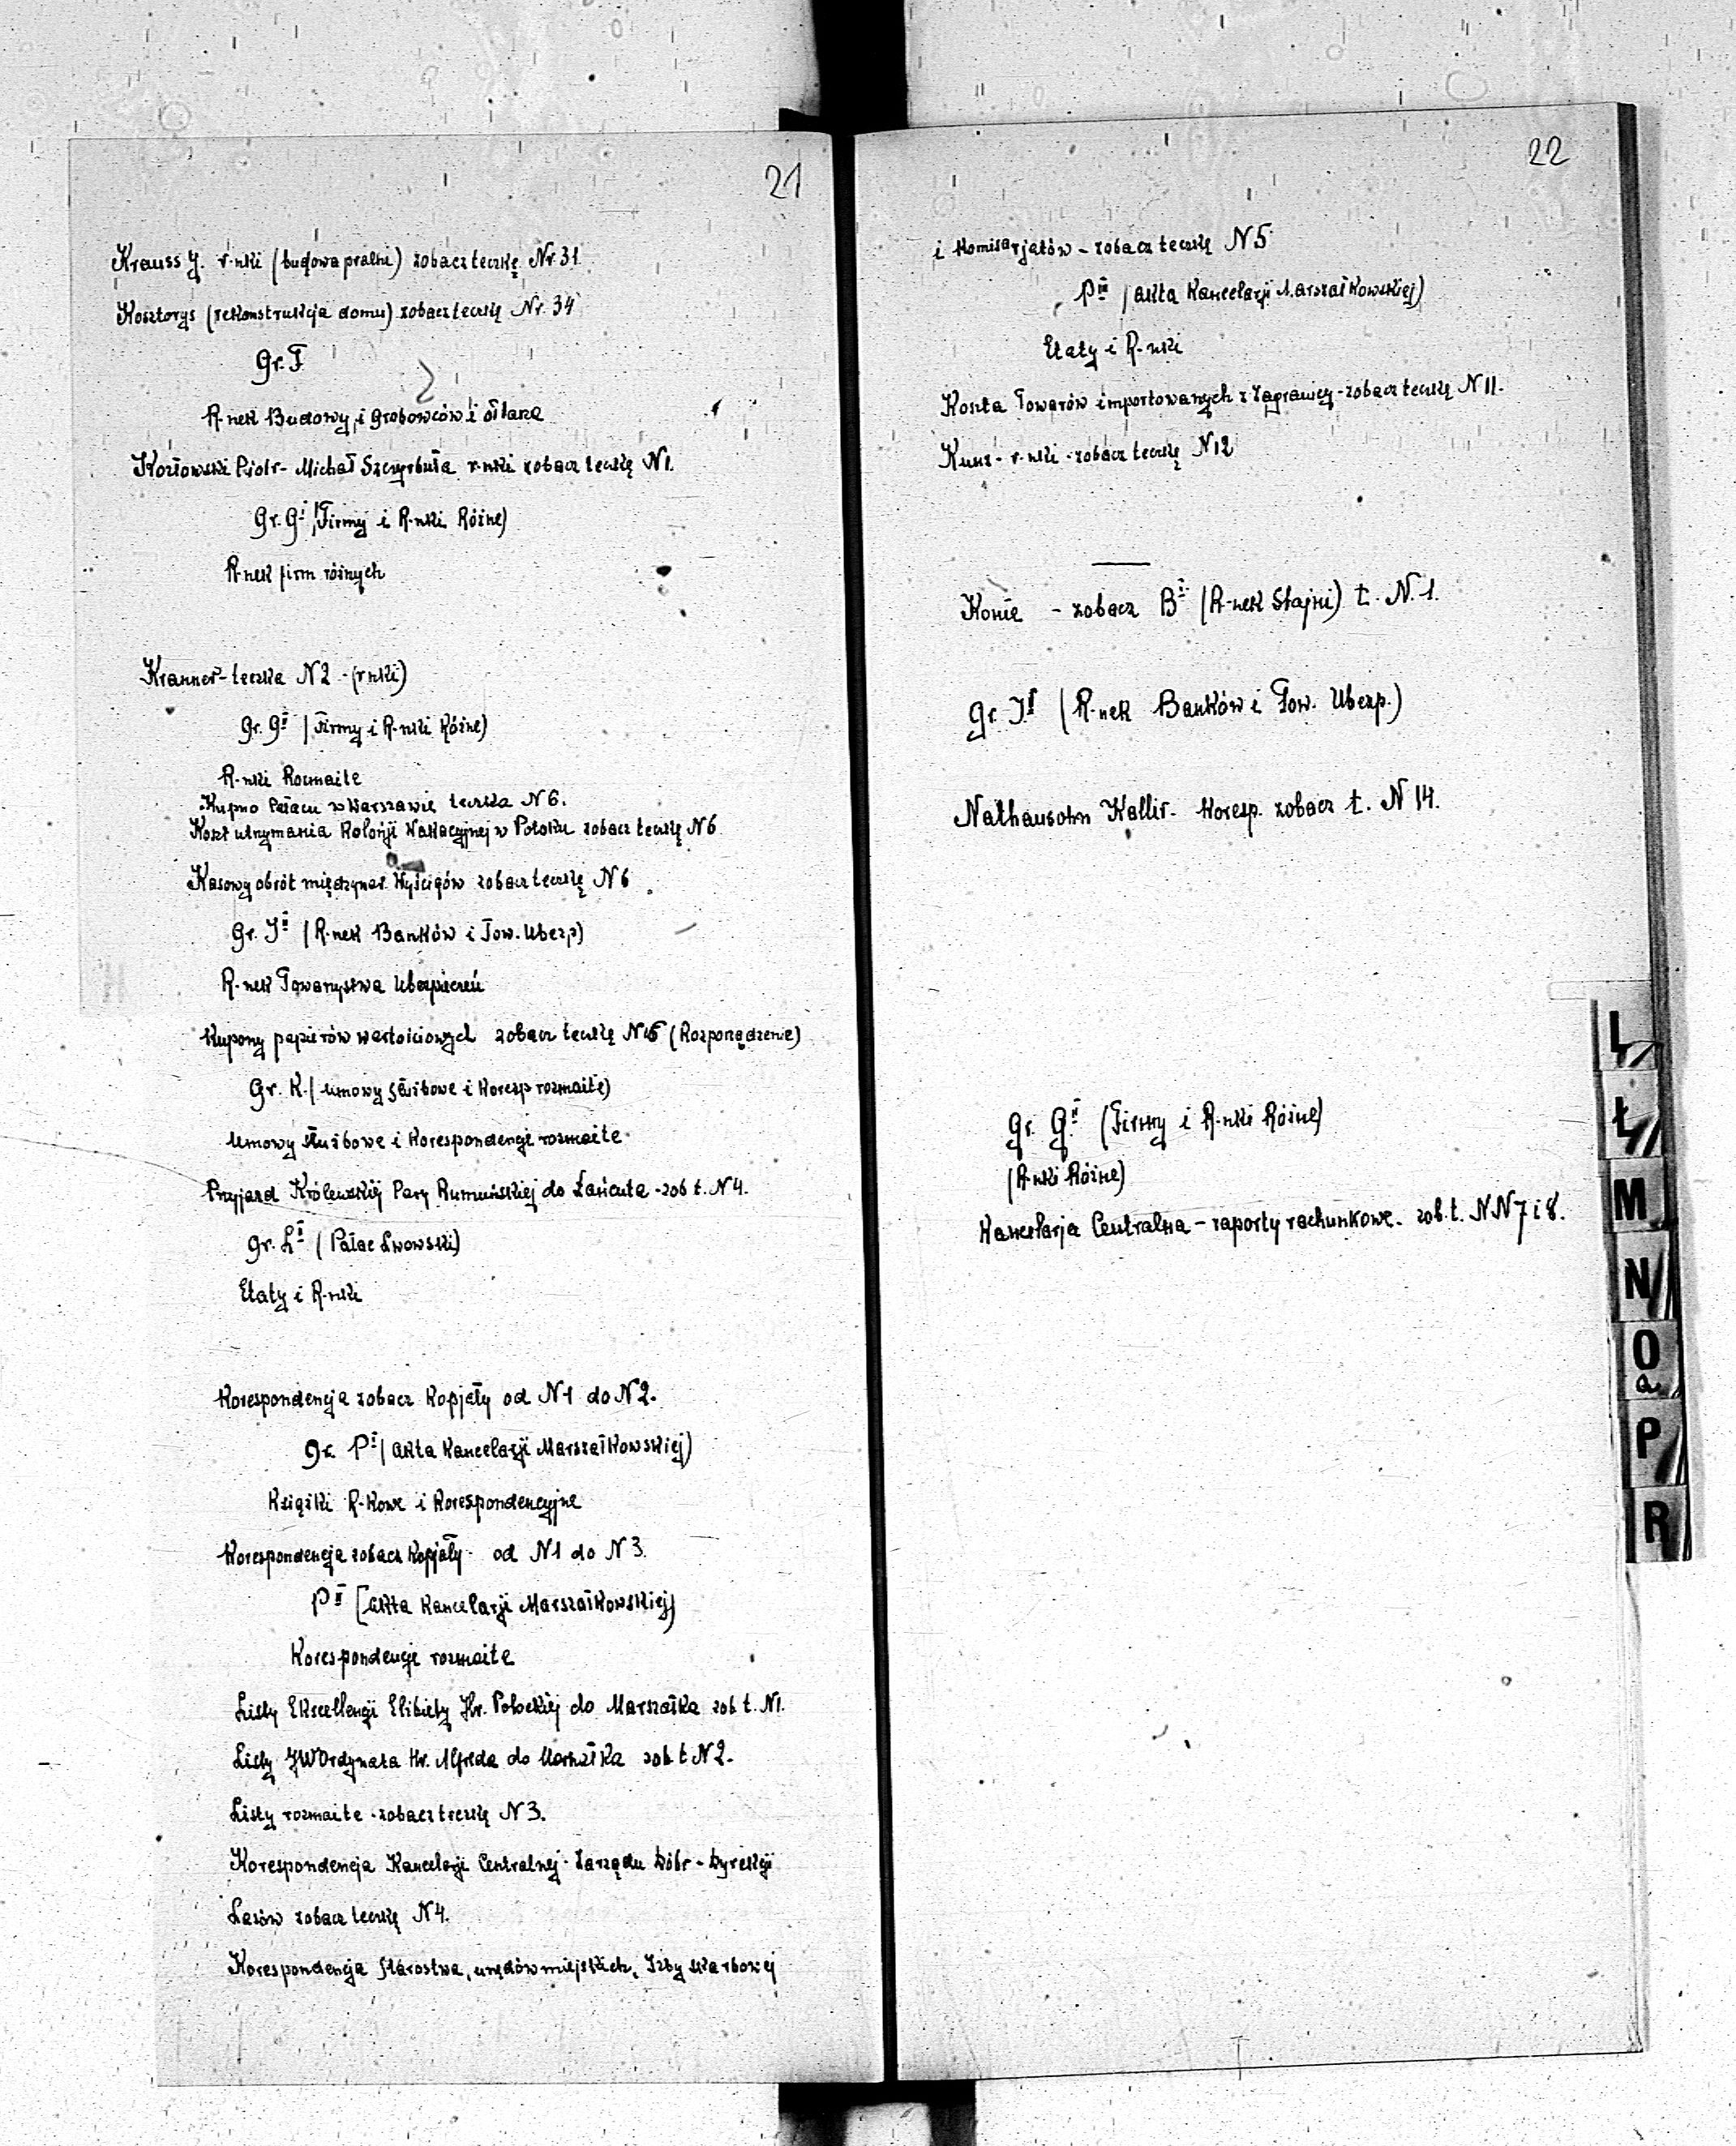 21
Krauss J. r-nki (budowa pralni) zobacz teczkę Nr. 31
Kosztorys (rekonstrukcja domu) zobacz teczkę Nr. 34
Gr. F
R-nek Budowy, i Grobowców i ołtarza
Kozłowski Piotr - Michał Szczyrbuła r-nki zobacz teczkę N1.
Gr. G I (Firmy i R-nki Różne)
R-nek firm różnych
Kranner - teczka N2 - (r-nki)
Gr. G II (Firmy i R-nki Różne)
R-nki Rozmaite
Kupno Pałacu w Warszawie teczka N6.
Koszt utrzymania Kolonji Wakacyjnej w Potoku zobacz teczkę N6
Kasowy obrót międzynar. Wyścigów zobacz teczkę N6.
Gr. J II (R-nek Banków i Tow. Ubezp)
R-nek Towarzystwa Ubezpieczeń
Kupony papierów wartościowych zobacz teczkę N15 (Rozporządzenie)
Gr. K. (umowy służbowe i koresp rozmaite)
Umowy służbowe i korespondencje rozmaite
Przyjazd Królewskiej Pary Rumuńskiej do Łańcuta - zob t. N4.
gr. Ł I (Pałac Lwowski)
Etaty i R-nki
Korespondencja zobacz Kopjały od N1 do N2.
gr. P I (akta Kancelarji Marszałkowskiej)
Książki R-kowe i Korespondencyjne
Korespondencja zobacz Kopjały - od N1 do N3.
P II (akta Kancelarji Marszałkowskiej)
Korespondencje rozmaite
Listy Ekscellencji Elżbiety Hr. Potockiej do Marszałka zob t. N1.
Listy JW Ordynata Hr. Alfreda do Marszałka zob t N2.
Listy rozmaite - zobacz teczkę N3.
Korespondencja Kancelarji Centralnej - Zarządu Dóbr - Dyrekcji
Lasów zobacz teczkę N4.
Korespondencja Starostwa, urzędów miejskich, Izby skarbowej
22
i Komisarjatów - zobacz teczkę N5
P III (akta Kancelarji Marszałkowskiej)
Etaty i R-nki
Koszta Towarów importowanych z zagranicy - zobacz teczkę N11.
Kunz - r-nki - zobacz teczkę N12
Konie - zobacz B I (R-nek Stajni) t. N. 1.
gr. J I (R-nek Banków i Tow. Ubezp.)
Nathansohn Kallir - Koresp. zobacz t. N 14.
Gr. G II (Firmy i R-nki Różne)
(R-nki Różne)
Kancelarja Centralna - raporty rachunkowe - zob. t. NN 7 i 8.
L
Ł
M
N
O
P
R